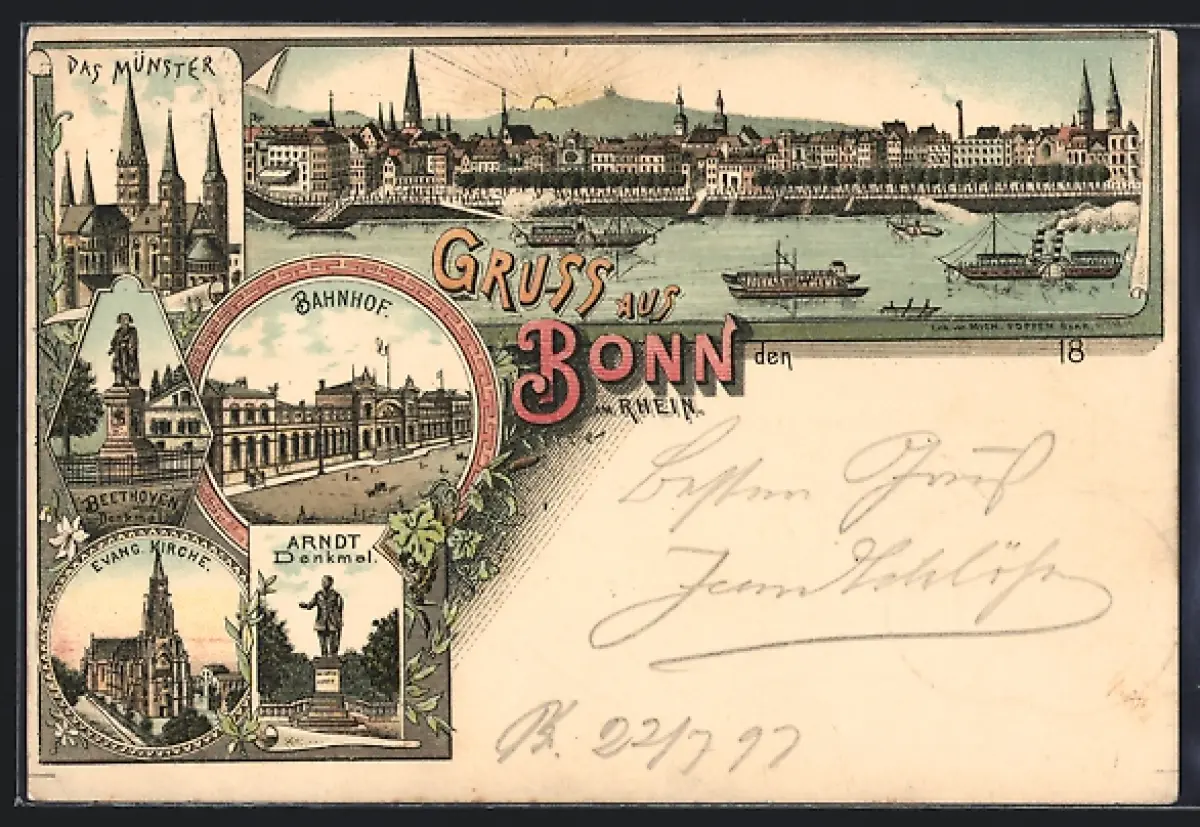 DAS MÜNSTER
GRUSS AUS
BONN
AM RHEIN.
den 18
BAHNHOF.
BEETHOVEN
Denkmal
EVANG. KIRCHE.
ARNDT
Denkmal.
Besten Gruß
Jean
B. 22/7 97